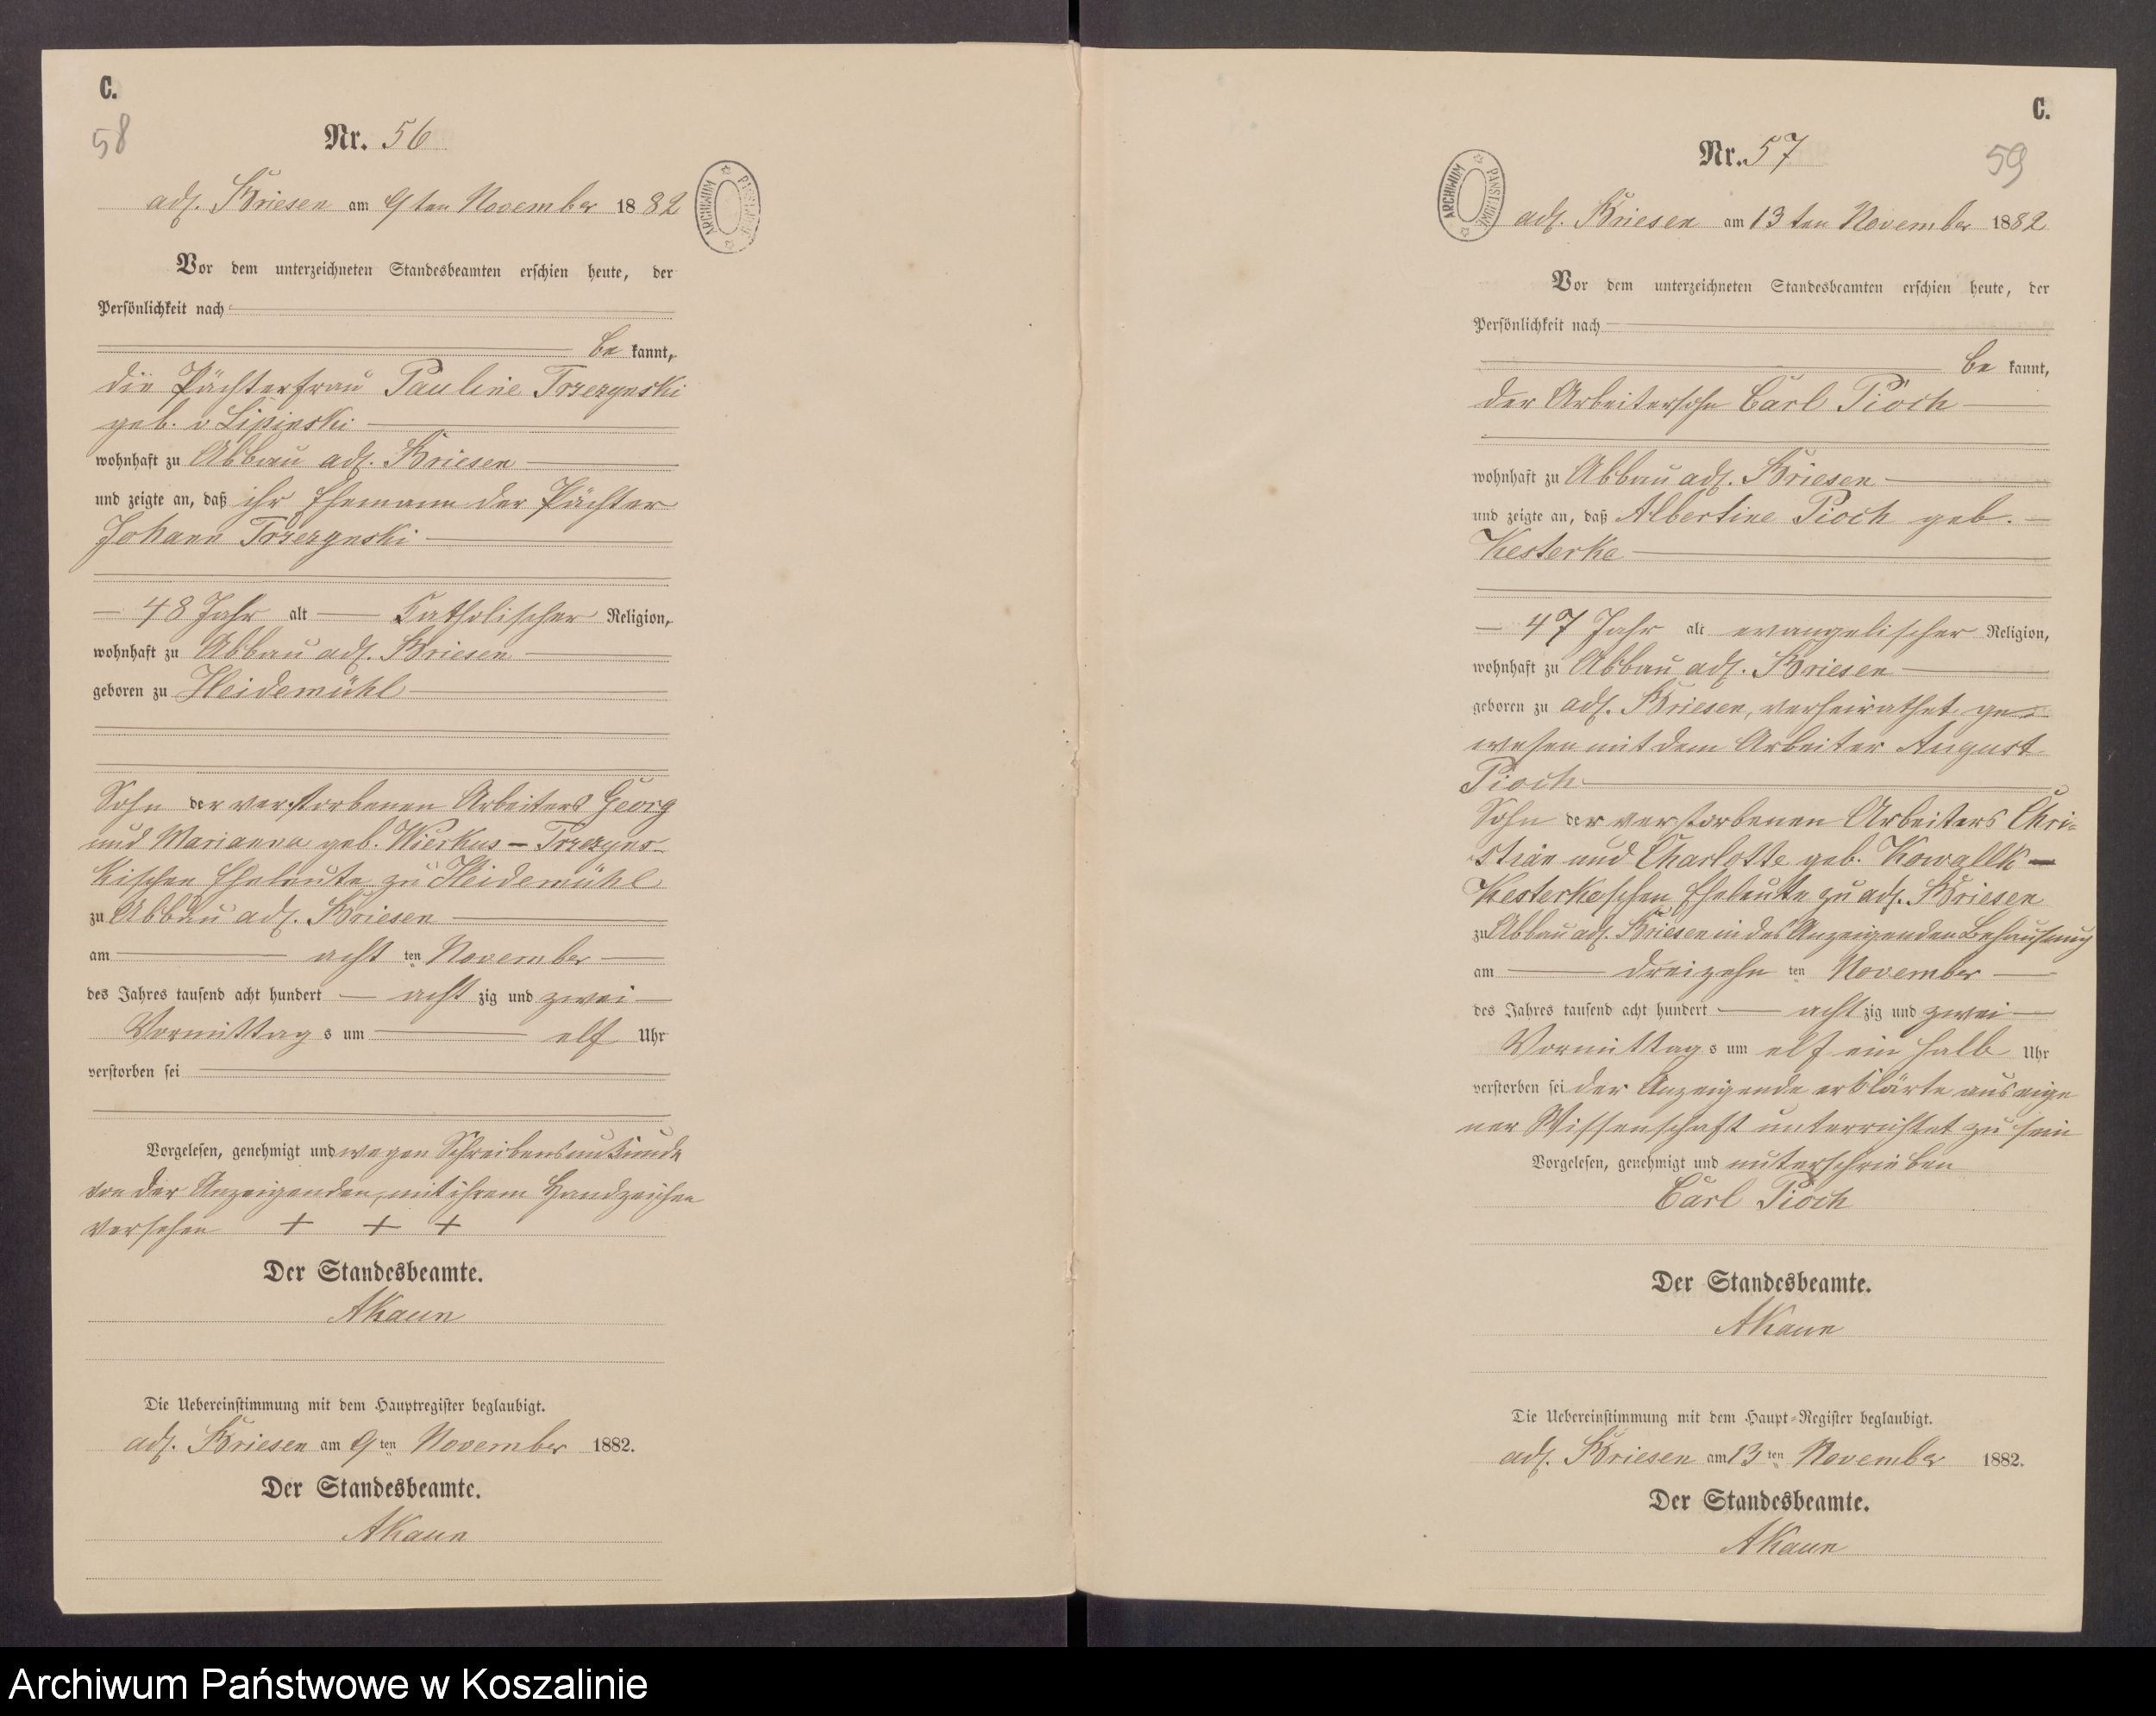 C.
58
Nr. 56
adl. Briesen am 9ten November 1882
Vor dem unterzeichneten Standesbeamten erschien heute, der
Persönlichkeit nach
be kannt,
die Pächterfrau Pauline Trzezynski
geb. v Lipinski
wohnhaft zu Abbau adl. Briesen
und zeigte an, daß ihr Ehemann der Pächter
Johann Trzezynski
48 Jahr alt Katholischer Religion,
wohnhaft zu Abbau adl. Briesen
geboren zu Heidemühl
Sohn der verstorbenen Arbeiters Georg
und Marianna geb. Wierkus - Trzezyns-
kischen Eheleute zu Heidemühl
zu Abbau adl. Briesen
am acht ten November
des Jahres tausend acht hundert acht zig und zwei
Vormittag s um elf Uhr
verstorben sei
Vorgelesen, genehmigt und wegen Schreibensunkunde
von der Anzeigenden, mit ihrem Handzeichen
versehen + + +
Der Standesbeamte.
AKaun
Die Uebereinstimmung mit dem Hauptregister beglaubigt.
adl. Briesen am 9ten November 1882.
Der Standesbeamte.
AKaun
ARCHIWUM PAŃSTWOWE
C.
59
Nr. 57
ARCHIWUM PAŃSTWOWE
adl. Briesen am 13ten November 1882
Vor dem unterzeichneten Standesbeamten erschien heute, der
Persönlichkeit nach
be kannt,
der Arbeitersohn Carl Pioch
wohnhaft zu Abbau adl. Briesen
und zeigte an, daß Albertine Pioch geb.
Kesterke
47 Jahr alt evangelischer Religion,
wohnhaft zu Abbau adl. Briesen
geboren zu adl. Briesen, verheirathet ge-
wesen mit dem Arbeiter August
Pioch
Sohn der verstorbenen Arbeiters Chri-
stian und Charlotte geb. Kowallk -
Kesterkeschen Eheleute zu adl. Briesen
zu Abbau adl. Briesen in des Anzeigenden Behausung
am dreizehn ten November
des Jahres tausend acht hundert acht zig und zwei
Vormittag s um elf ein halb Uhr
verstorben sei der Anzeigende erklärte aus eige
ner Wissenschaft unterrichtet zu sein
Vorgelesen, genehmigt und unterschrieben
Carl Pioch
Der Standesbeamte.
AKaun
Die Uebereinstimmung mit dem Haupt-Register beglaubigt.
adl. Briesen am 13ten November 1882.
Der Standesbeamte.
AKaun
Archiwum Państwowe w Koszalinie